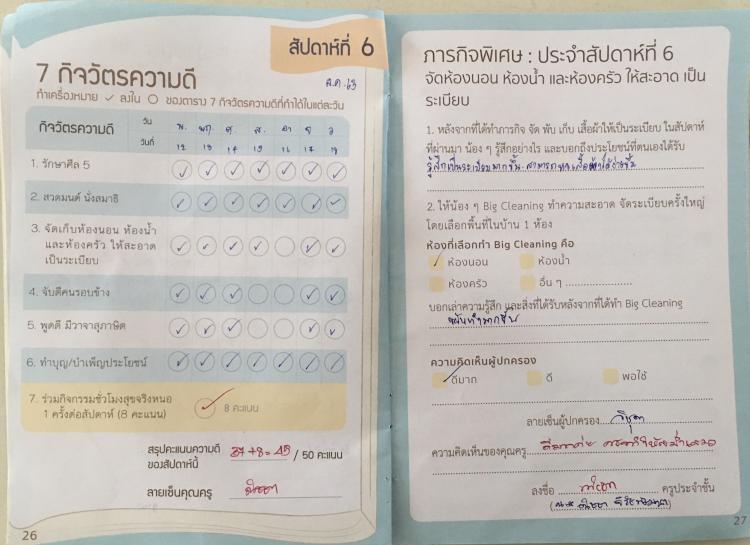 สัปดาห์ที่ 6
7 กิจวัตรความดี
ส.ค. 63
ทำเครื่องหมาย ✓ ลงใน ○ ของตาราง 7 กิจวัตรความดีที่ทำได้ในแต่ละวัน
กิจวัตรความดี วัน พ. พฤ ศ. ส. อา จ อ
วันที่ 12 13 14 15 16 17 18
1. รักษาศีล 5
2. สวดมนต์ นั่งสมาธิ
3. จัดเก็บห้องนอน ห้องน้ำ
และห้องครัว ให้สะอาด
เป็นระเบียบ
4. จับดีคนรอบข้าง
5. พูดดี มีวาจาสุภาษิต
6. ทำบุญ/บำเพ็ญประโยชน์
7. ร่วมกิจกรรมชั่วโมงสุขจริงหนอ
1 ครั้งต่อสัปดาห์ (8 คะแนน)
8 คะแนน
สรุปคะแนนความดี
ของสัปดาห์นี้ 37+8 = 45 / 50 คะแนน
ลายเซ็นคุณครู
26
ภารกิจพิเศษ : ประจำสัปดาห์ที่ 6
จัดห้องนอน ห้องน้ำ และห้องครัว ให้สะอาด เป็น
ระเบียบ
1. หลังจากที่ได้ทำภารกิจ จัด พับ เก็บ เสื้อผ้าให้เป็นระเบียบ ในสัปดาห์
ที่ผ่านมา น้อง ๆ รู้สึกอย่างไร และบอกถึงประโยชน์ที่ตนเองได้รับ
รู้สึกเป็นระเบียบมากขึ้น สามารถหาเสื้อผ้าได้ง่ายขึ้น
2. ให้น้อง ๆ Big Cleaning ทำความสะอาด จัดระเบียบครั้งใหญ่
โดยเลือกพื้นที่ในบ้าน 1 ห้อง
ห้องที่เลือกทำ Big Cleaning คือ
✓ ห้องนอน ห้องน้ำ
ห้องครัว อื่น ๆ
บอกเล่าความรู้สึก และสิ่งที่ได้รับหลังจากที่ได้ทำ Big Cleaning
ความคิดเห็นผู้ปกครอง
✓ ดีมาก ดี พอใช้
ลายเซ็นผู้ปกครอง
ความคิดเห็นของคุณครู
ลงชื่อ ครูประจำชั้น
27